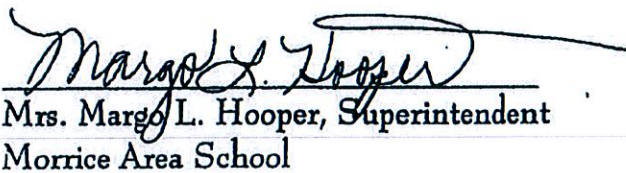 Margo L. Hooper
Mrs. Margo L. Hooper, Superintendent
Morrice Area School